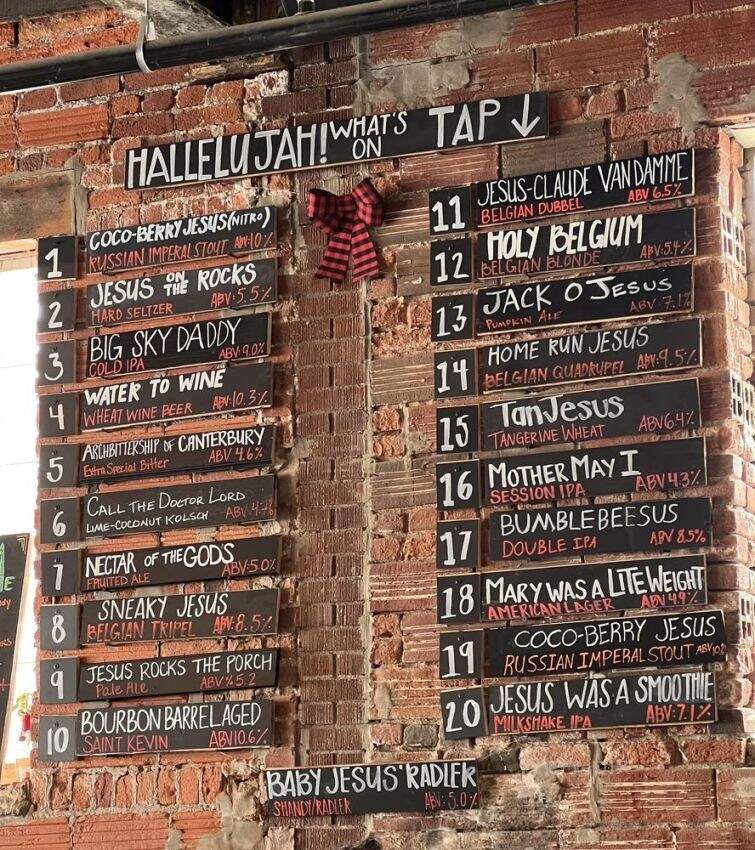 HALLELUJAH! WHAT'S ON TAP ↓
1 COCO-BERRY JESUS (NITRO)
RUSSIAN IMPERAL STOUT ABV:10%
2 JESUS ON THE ROCKS
HARD SELTZER ABV:5.5%
3 BIG SKY DADDY
COLD IPA ABV:9.0%
4 WATER TO WINE
WHEAT WINE BEER ABV:10.3%
5 ARCHBITTERSHIP OF CANTERBURY
Extra Special Bitter ABV 4.6%
6 CALL THE DOCTOR LORD
LIME-COCONUT KOLSCH ABV 4.7%
7 NECTAR OF THE GODS
FRUITED ALE ABV:5.0%
8 SNEAKY JESUS
BELGIAN TRIPEL ABV:8.5%
9 JESUS ROCKS THE PORCH
Pale Ale ABV%5.2
10 BOURBON BARREL AGED
SAINT KEVIN ABV10.6%
11 JESUS-CLAUDE VAN DAMME
BELGIAN DUBBEL ABV 6.5%
12 HOLY BELGIUM
BELGIAN BLONDE ABV:5.4%
13 JACK O JESUS
PUMPKIN ALE ABV 7.1%
14 HOME RUN JESUS
BELGIAN QUADRUPEL ABV:9.5%
15 TanJesus
TANGERINE WHEAT ABV6.4%
16 MOTHER MAY I
SESSION IPA ABV4.3%
17 BUMBLEBEESUS
DOUBLE IPA ABV 8.5%
18 MARY WAS A LITE WEIGHT
AMERICAN LAGER ABV 4.9%
19 COCO-BERRY JESUS
RUSSIAN IMPERAL STOUT ABV10%
20 JESUS WAS A SMOOTHIE
MILKSHAKE IPA ABV:7.1%
BABY JESUS' RADLER
SHANDY/RADLER ABV:5.0%